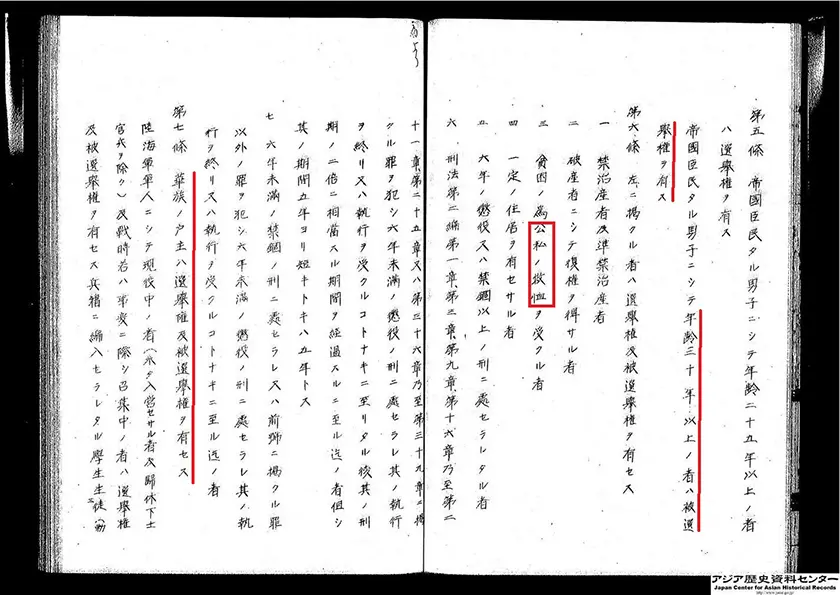 第五條 帝國臣民タル男子ニシテ年齡二十五年以上ノ者
ハ選擧權ヲ有ス
帝國臣民タル男子ニシテ年齡三十年以上ノ者ハ被選
擧權ヲ有ス
第六條 左ニ掲クル者ハ選擧權及被選擧權ヲ有セス
一 禁治産者及準禁治産者
二 破産者ニシテ復權ヲ得サル者
三 貧困ノ爲公私ノ救恤ヲ受クル者
四 一定ノ住居ヲ有セサル者
五 六年ノ懲役又ハ禁錮以上ノ刑ニ處セラレタル者
六 刑法第二編第一章第三章第九章第十六章乃至第二
十一章第二十五章又ハ第三十六章乃至第三十九章ニ掲
クル罪ヲ犯シ六年未滿ノ懲役ノ刑ニ處セラレ其ノ執行
ヲ終リ又ハ執行ヲ受クルコトナキニ至リタル後其ノ刑
期ノ二倍ニ相當スル期間ヲ經過スルニ至ル迄ノ者但シ
其ノ期間五年ヨリ短キトキハ五年トス
七 六年未滿ノ禁錮ノ刑ニ處セラレ又ハ前號ニ掲クル罪
以外ノ罪ヲ犯シ六年未滿ノ懲役ノ刑ニ處セラレ其ノ執
行ヲ終リ又ハ執行ヲ受クルコトナキニ至ル迄ノ者
第七條 華族ノ戸主ハ選擧權及被選擧權ヲ有セス
陸海軍軍人ニシテ現役中ノ者(未タ入營セサル者及歸休下士
官兵ヲ除ク)及戰時若ハ事變ニ際シ召集中ノ者ハ選擧權
及被選擧權ヲ有セス兵籍ニ編入セラレタル學生生徒(勅
アジア歴史資料センター
Japan Center for Asian Historical Records
http://www.jacar.go.jp/